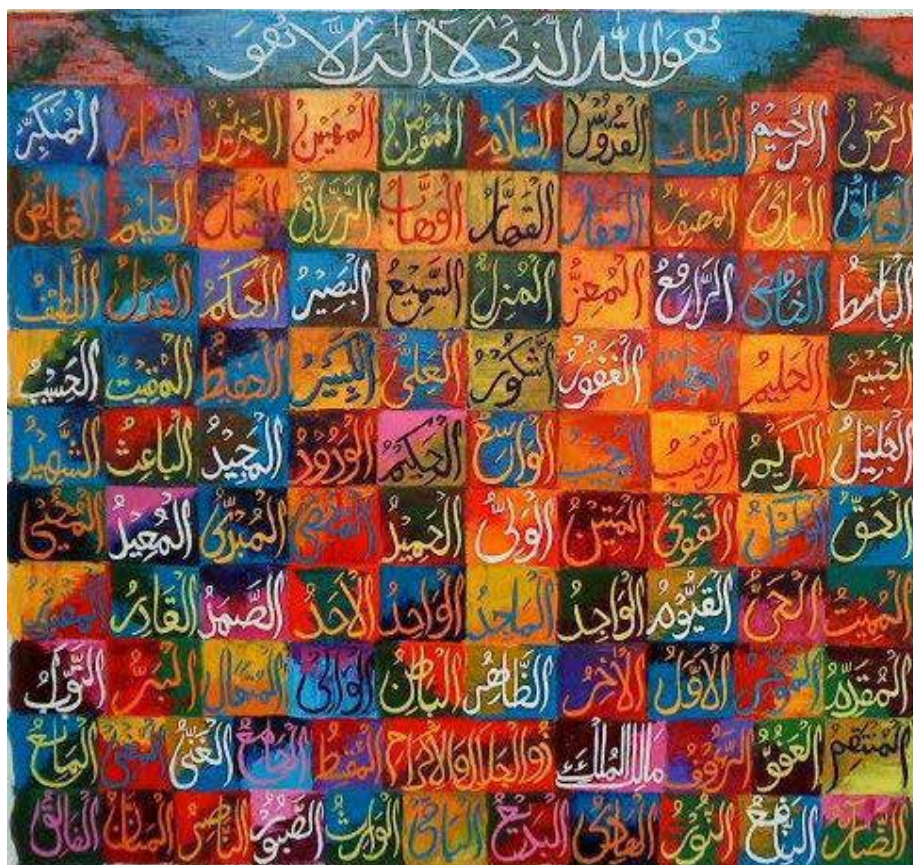 هو الله الذي لا اله الا هو
الرحمن الرحيم الملك القدوس السلام المؤمن المهيمن العزيز الجبار المتكبر
الخالق البارئ المصور الغفار القهار الوهاب الرزاق الفتاح العليم القابض
الباسط الخافض الرافع المعز المذل السميع البصير الحكم العدل اللطيف
الخبير الحليم العظيم الغفور الشكور العلي الكبير الحفيظ المقيت الحسيب
الجليل الكريم الرقيب المجيب الواسع الحكيم الودود المجيد الباعث الشهيد
الحق الوكيل القوي المتين الولي الحميد المحصي المبدئ المعيد المحيي
المميت الحي القيوم الواجد الماجد الواحد الاحد الصمد القادر
المقدم المؤخر الاول الاخر الظاهر الباطن الوالي المتعال البر التواب
المنتقم العفو الرءوف مالك الملك ذو الجلال والاكرام المقسط الجامع الغني المغني المانع
الضار النافع النور الهادي البديع الباقي الوارث الصبور الناصر المنان الفالق